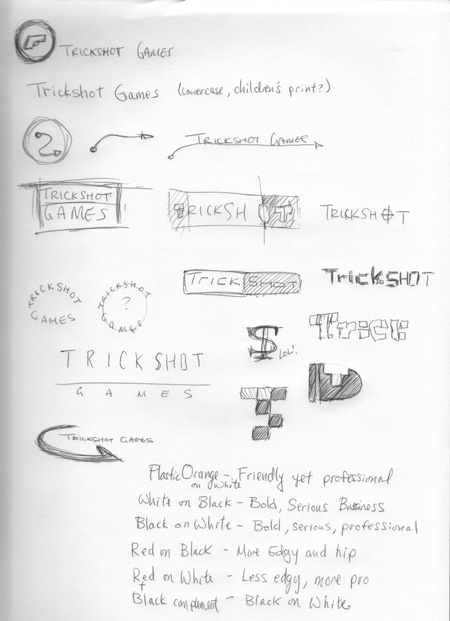 TRICKSHOT GAMES
Trickshot Games (lowercase, children's print?)
TRICKSHOT GAMES
TRICKSHOT
GAMES
TRICKSHOT
TRICKSHOT
TRICKSHOT
GAMES
TRICKSHOT
GAMES
?
TRICKSHOT
TRICKSHOT
$ LOL!
Trick
TRICKSHOT
GAMES
T
TRICKSHOT GAMES
Plastic Orange - Friendly yet professional
on White
White on Black - Bold, Serious Business
Black on White - Bold, serious, professional
Red on Black - More Edgy and hip
Red on White - Less edgy, more pro
+
Black component - Black on White